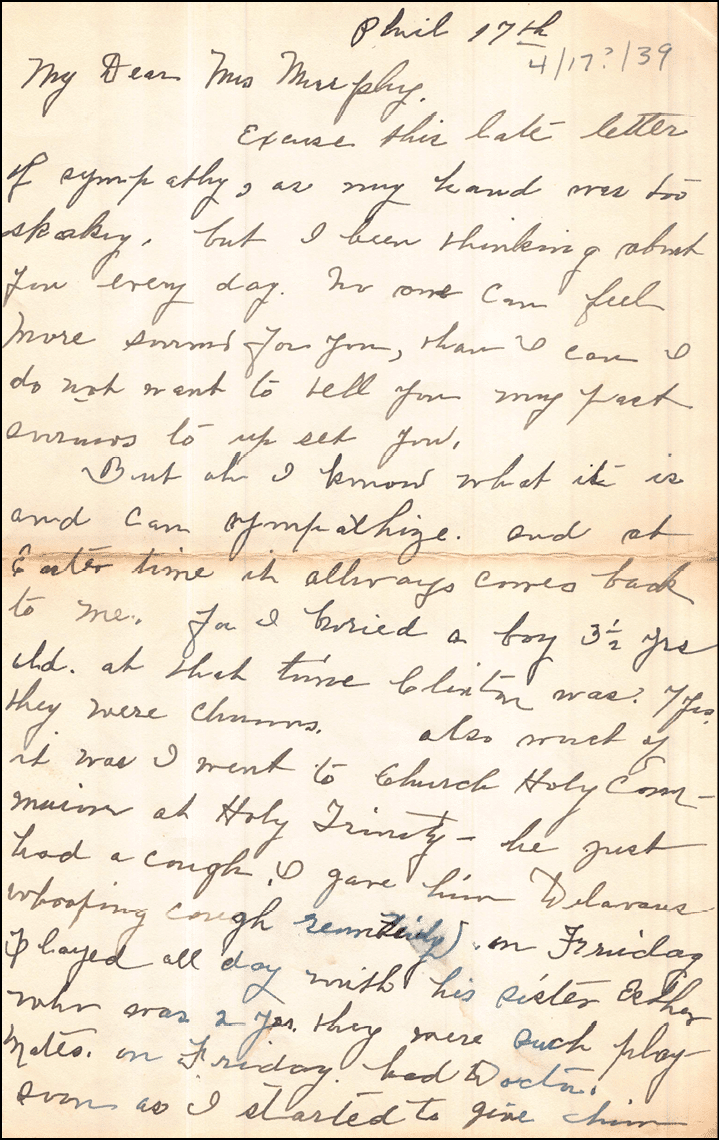 Phil 17th
4/17?/39
My Dear Mrs Murphy.
Excuse this late letter
of sympathy, as my hand was too
shaky. but I been thinking about
you every day. No one can feel
more for you, than I can I
do not want to tell you my past
to up set you.
But oh I know what it is
and can sympathize. and at
Easter time it allways comes back
to me. for I buried a boy 3½ yrs
old. at that time Clinton was 7 yrs.
they were chums. also worst of
it was I went to Church Holy Com-
munion at Holy Trinity - he just
had a cough. I gave him Delavaus
whooping cough . on Friday
Played all day with his sister Esther
who was 2 yrs. they were such play
mates. on Friday. had Doctor.
soon as I started to give him